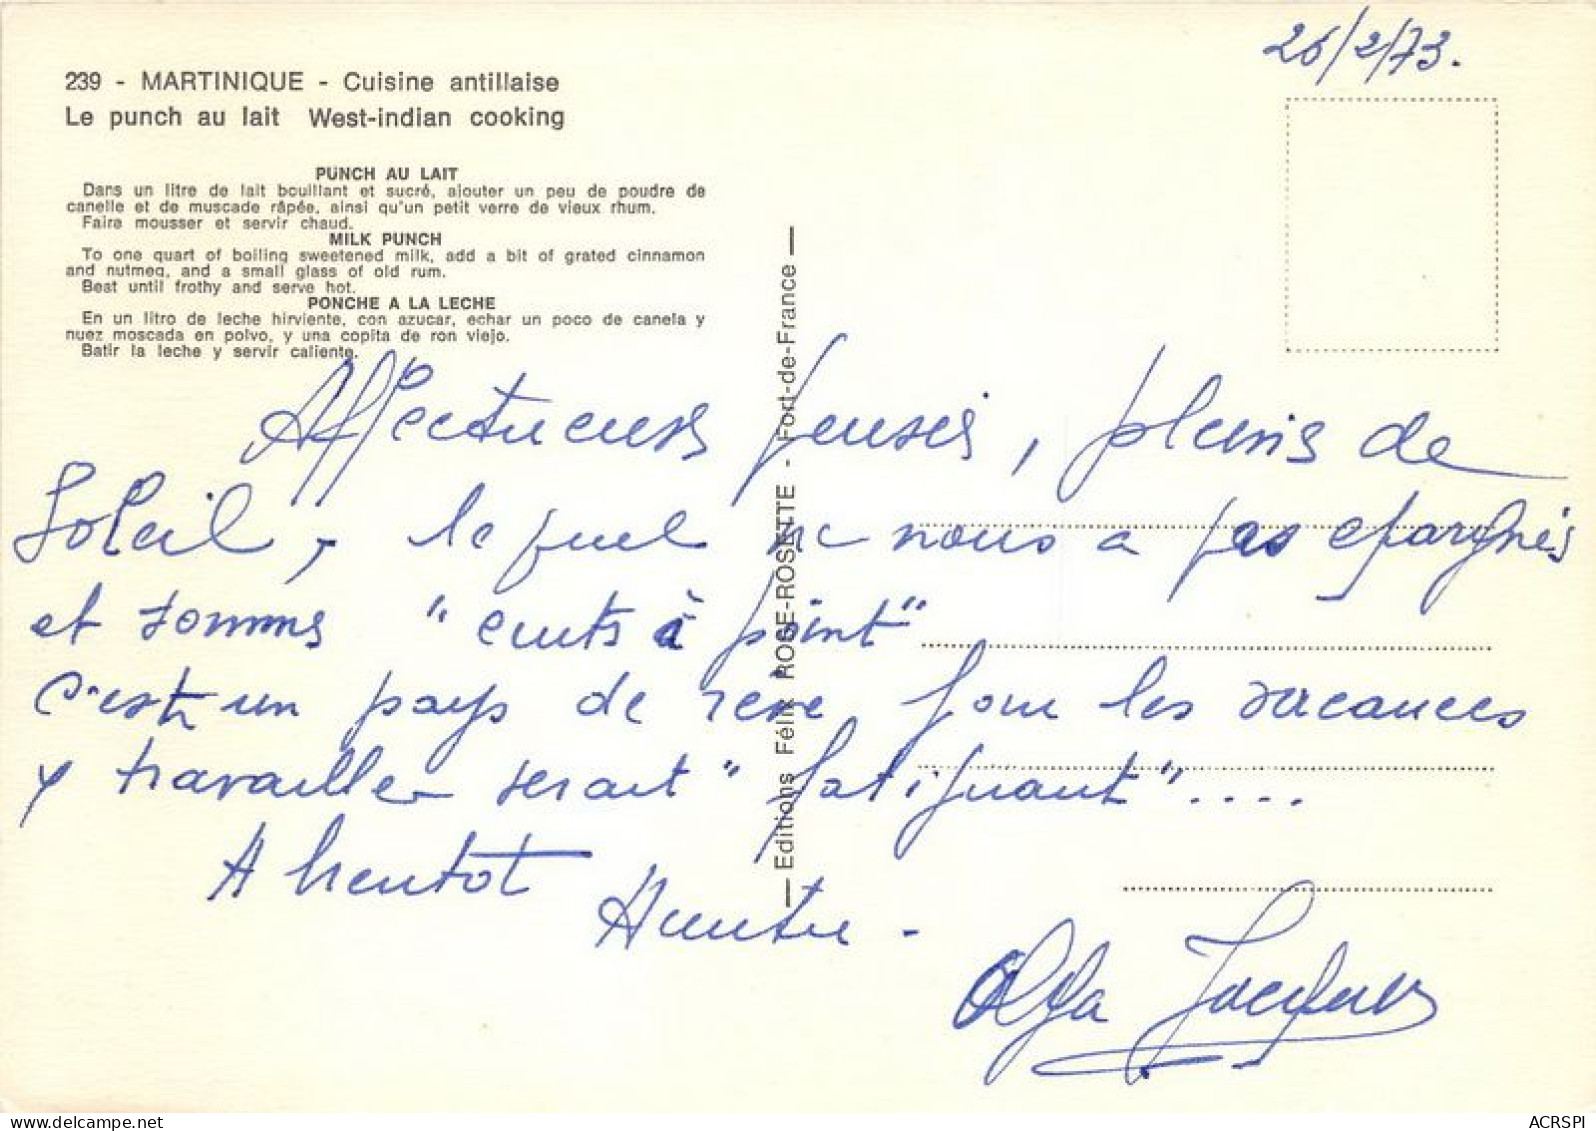 26/2/73.
239 - MARTINIQUE - Cuisine antillaise
Le punch au lait West-indian cooking
PUNCH AU LAIT
Dans un litre de lait bouillant et sucré, ajouter un peu de poudre de
canelle et de muscade râpée, ainsi qu'un petit verre de vieux rhum.
Faire mousser et servir chaud.
MILK PUNCH
To one quart of boiling sweetened milk, add a bit of grated cinnamon
and nutmeg, and a small glass of old rum.
Beat until frothy and serve hot.
PONCHE A LA LECHE
En un litro de leche hirviente, con azucar, echar un poco de canela y
nuez moscada en polvo, y una copita de ron viejo.
Batir la leche y servir caliente.
Editions Félix ROSE-ROSETTE - Fort-de-France
Affectueuses pensées, pleins de
Soleil, lequel ne nous a pas epargnés
et sommes "cuits à point"
c'est un pays de rêve pour les vacances
y travailler serait "fatiguant"....
A bientot
Olga Jacques
ACRSPI